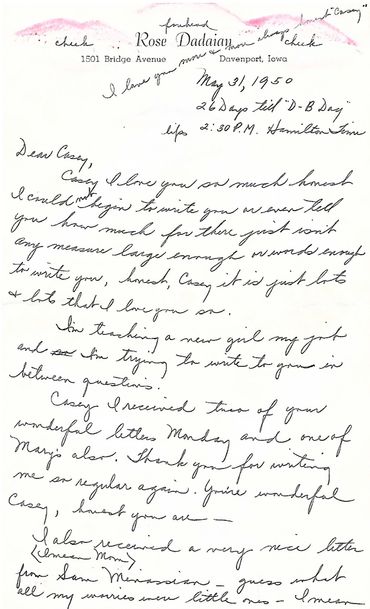 forehead
cheek Rose Dadaian cheek
1501 Bridge Avenue Davenport, Iowa
I love you more & more always honest "Casey"
May 31, 1950
26 Days till "D-B Day"
lips 2:30 P.M. Hamilton Time
Dear Casey,
Casey I love you so much honest
I could not begin to write you or even tell
you how much for there just isn't
any measure large enough or words enough
to write you, honest, Casey it is just lots
& lots that I love you so.
I'm teaching a new girl my job
and so I'm trying to write to you in
between questions.
Casey I received two of your
wonderful letters Monday and one of
Mary's also. Thank you for writing
me so regular again. You're wonderful
Casey, honest you are —
I also received a very nice letter
(I mean Mom)
from Sam Minassian - guess what
all my worries were little ones - I mean